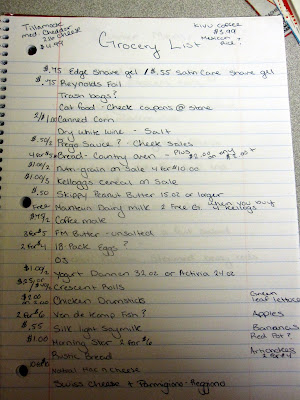 Tillamook
med Cheddar
2lb cheese
$4.99
KIVU coffee
$3.99
Mexican ?
Rice !
Grocery List
$.75 Edge shave gel / $.55 Satin Care shave gel
$.75 Reynolds Foil
Trash bags?
Cat food - Check coupons @ store
2/$1.00 Canned Corn
Dry white wine - Salt
$.50/2 Prego Sauce? - Check sales
4 for $5 Bread - Country oven - Plus $2.00 any $2.00 +
$1.00/2 nutri-grain on sale 4 for $10.00
$1.00/3 Kelloggs cereal on Sale
$.50 Skippy Peanut Butter 15 oz or larger
Free? Mountain Dairy milk 2 Free G? when you buy 4 Kelloggs
$4%/2 Coffee mate
3 for $5 FM Butter - unsalted
2 for $4 18-Pack Eggs?
OJ
$1.00/2 Yogurt Danon 32 oz or Activia 24 oz
Crescent Rolls
$2.00 Chicken Drumsticks
2 for $6 Van de Kamp Fish?
$.55 Silk light Soymilk
$1.00 Morning Star 2 for $6
Rustic Bread
Mac n Cheese
Swiss Cheese + Parmigiano-Reggiano
Green leaf lettuce
Apples
Bananas
Red Pot?
Artichokes
2 for $4